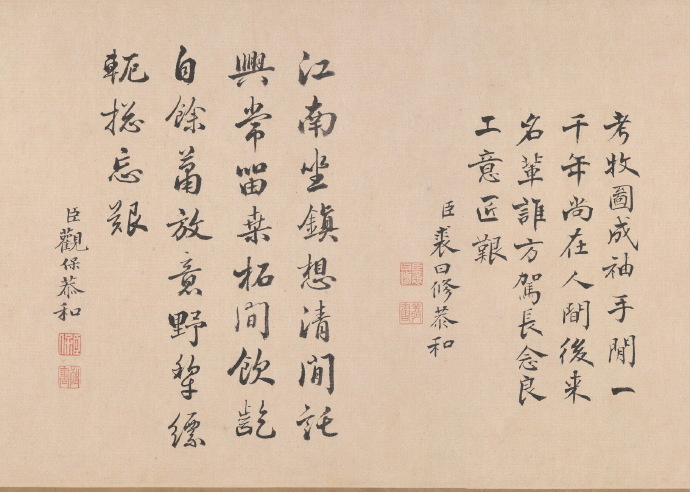 考牧圖成袖手閒一
千年尚在人間後来
名輩誰方駕長念良
工意匠艱
臣裘曰修恭和
江南坐鎮想清閒託
興常留桒柘間飲齕
自餘蕭放意野犂縹
軛揔忘艱
臣觀保恭和